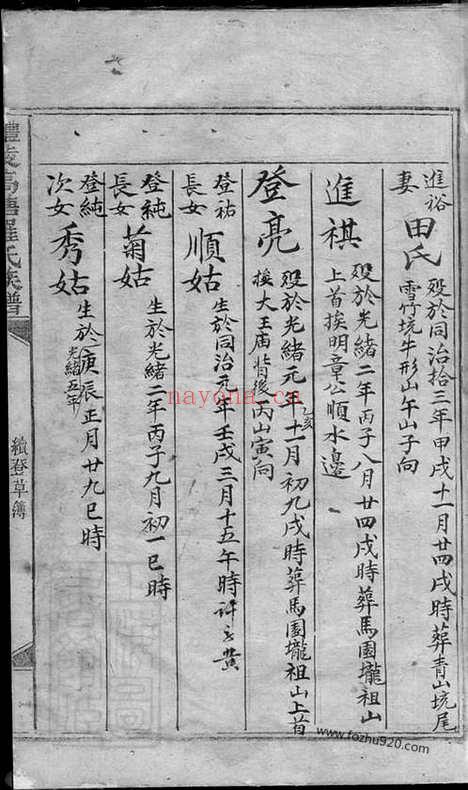 進裕
妻
田氏
殁於同治拾三年甲戌十一月廿四戌時葬青山坑尾
雪竹坑牛形山午山子向
進祺
殁於光緒二年丙子八月廿四戌時葬馬園壠祖山
上首挨明章公順水邊
登亮
殁於光緒元年乙亥十一月初九戌時葬馬園壠祖山上首
挨大王庙背後丙山寅向
登祐
長女
順姑
生於同治元年壬戌三月十五午時許
黄
登純
長女
菊姑
生於光緒二年丙子九月初一巳時
登純
次女
秀姑
生於庚辰正月廿九巳時
光緒五年
氏族譜
續登草簿
nayona.cn
www.fozhu920.com